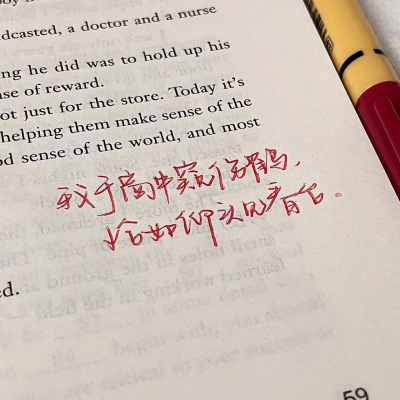 dcasted, a doctor and a nurse
ng he did was to hold up his
se of reward.
ot just for the store. Today it's
helping them make sense of the
d sense of the world, and most
我于窗中窥鹤，
恰如仰头见春台。
ed.
59